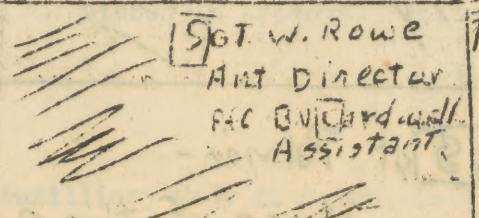 SGT W. Rowe
Art Director
PFC B V Cardwell
Assistant